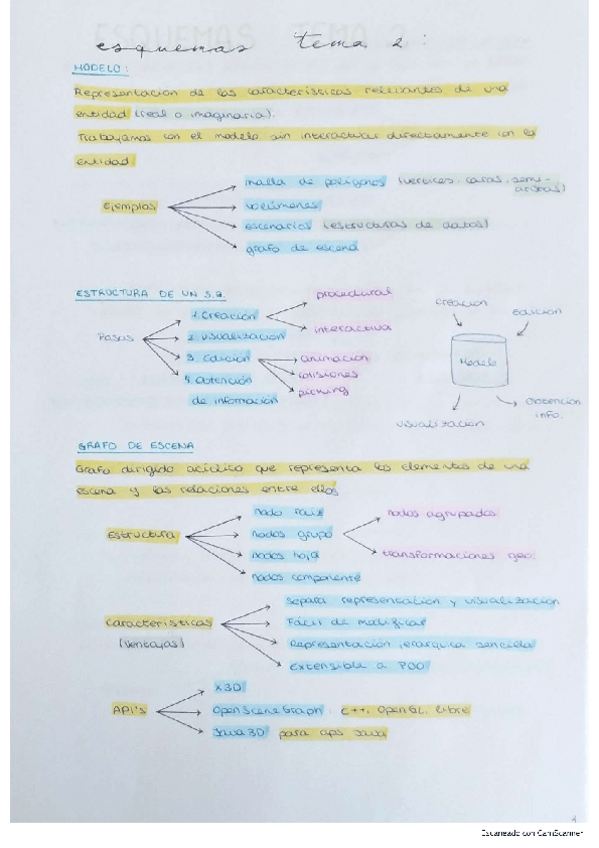 esquemas tema 2:
MODELO:
Representación de las características relevantes de una
entidad (real o imaginaria).
Trabajamos con el modelo sin interactuar directamente con la
entidad.
Ejemplos
malla de polígonos (vertices, caras, semi-
aristas)
volúmenes
escenarios (estructuras de datos)
grafo de escena
ESTRUCTURA DE UN S.G.
Pasos
1. Creación
procedural
interactiva
2. visualización
3. Edición
animación
colisiones
picking
4. obtención
de información
creación
edición
Modelo
visualización
Obtención
info.
GRAFO DE ESCENA
Grafo dirigido acíclico que representa los elementos de una
escena y las relaciones entre ellos
Estructura
nodo raíz
nodos grupo
nodos agrupados
transformaciones geo.
nodos hoja
nodos componente
Características
(ventajas)
separa representación y visualización
Fácil de modificar
Representación jerarquica sencilla
Extensible a POO
API's
X3D
OpenSceneGraph. C++, OpenGL, libre
Java3D para aps Java
4
Escaneado con CamScanner